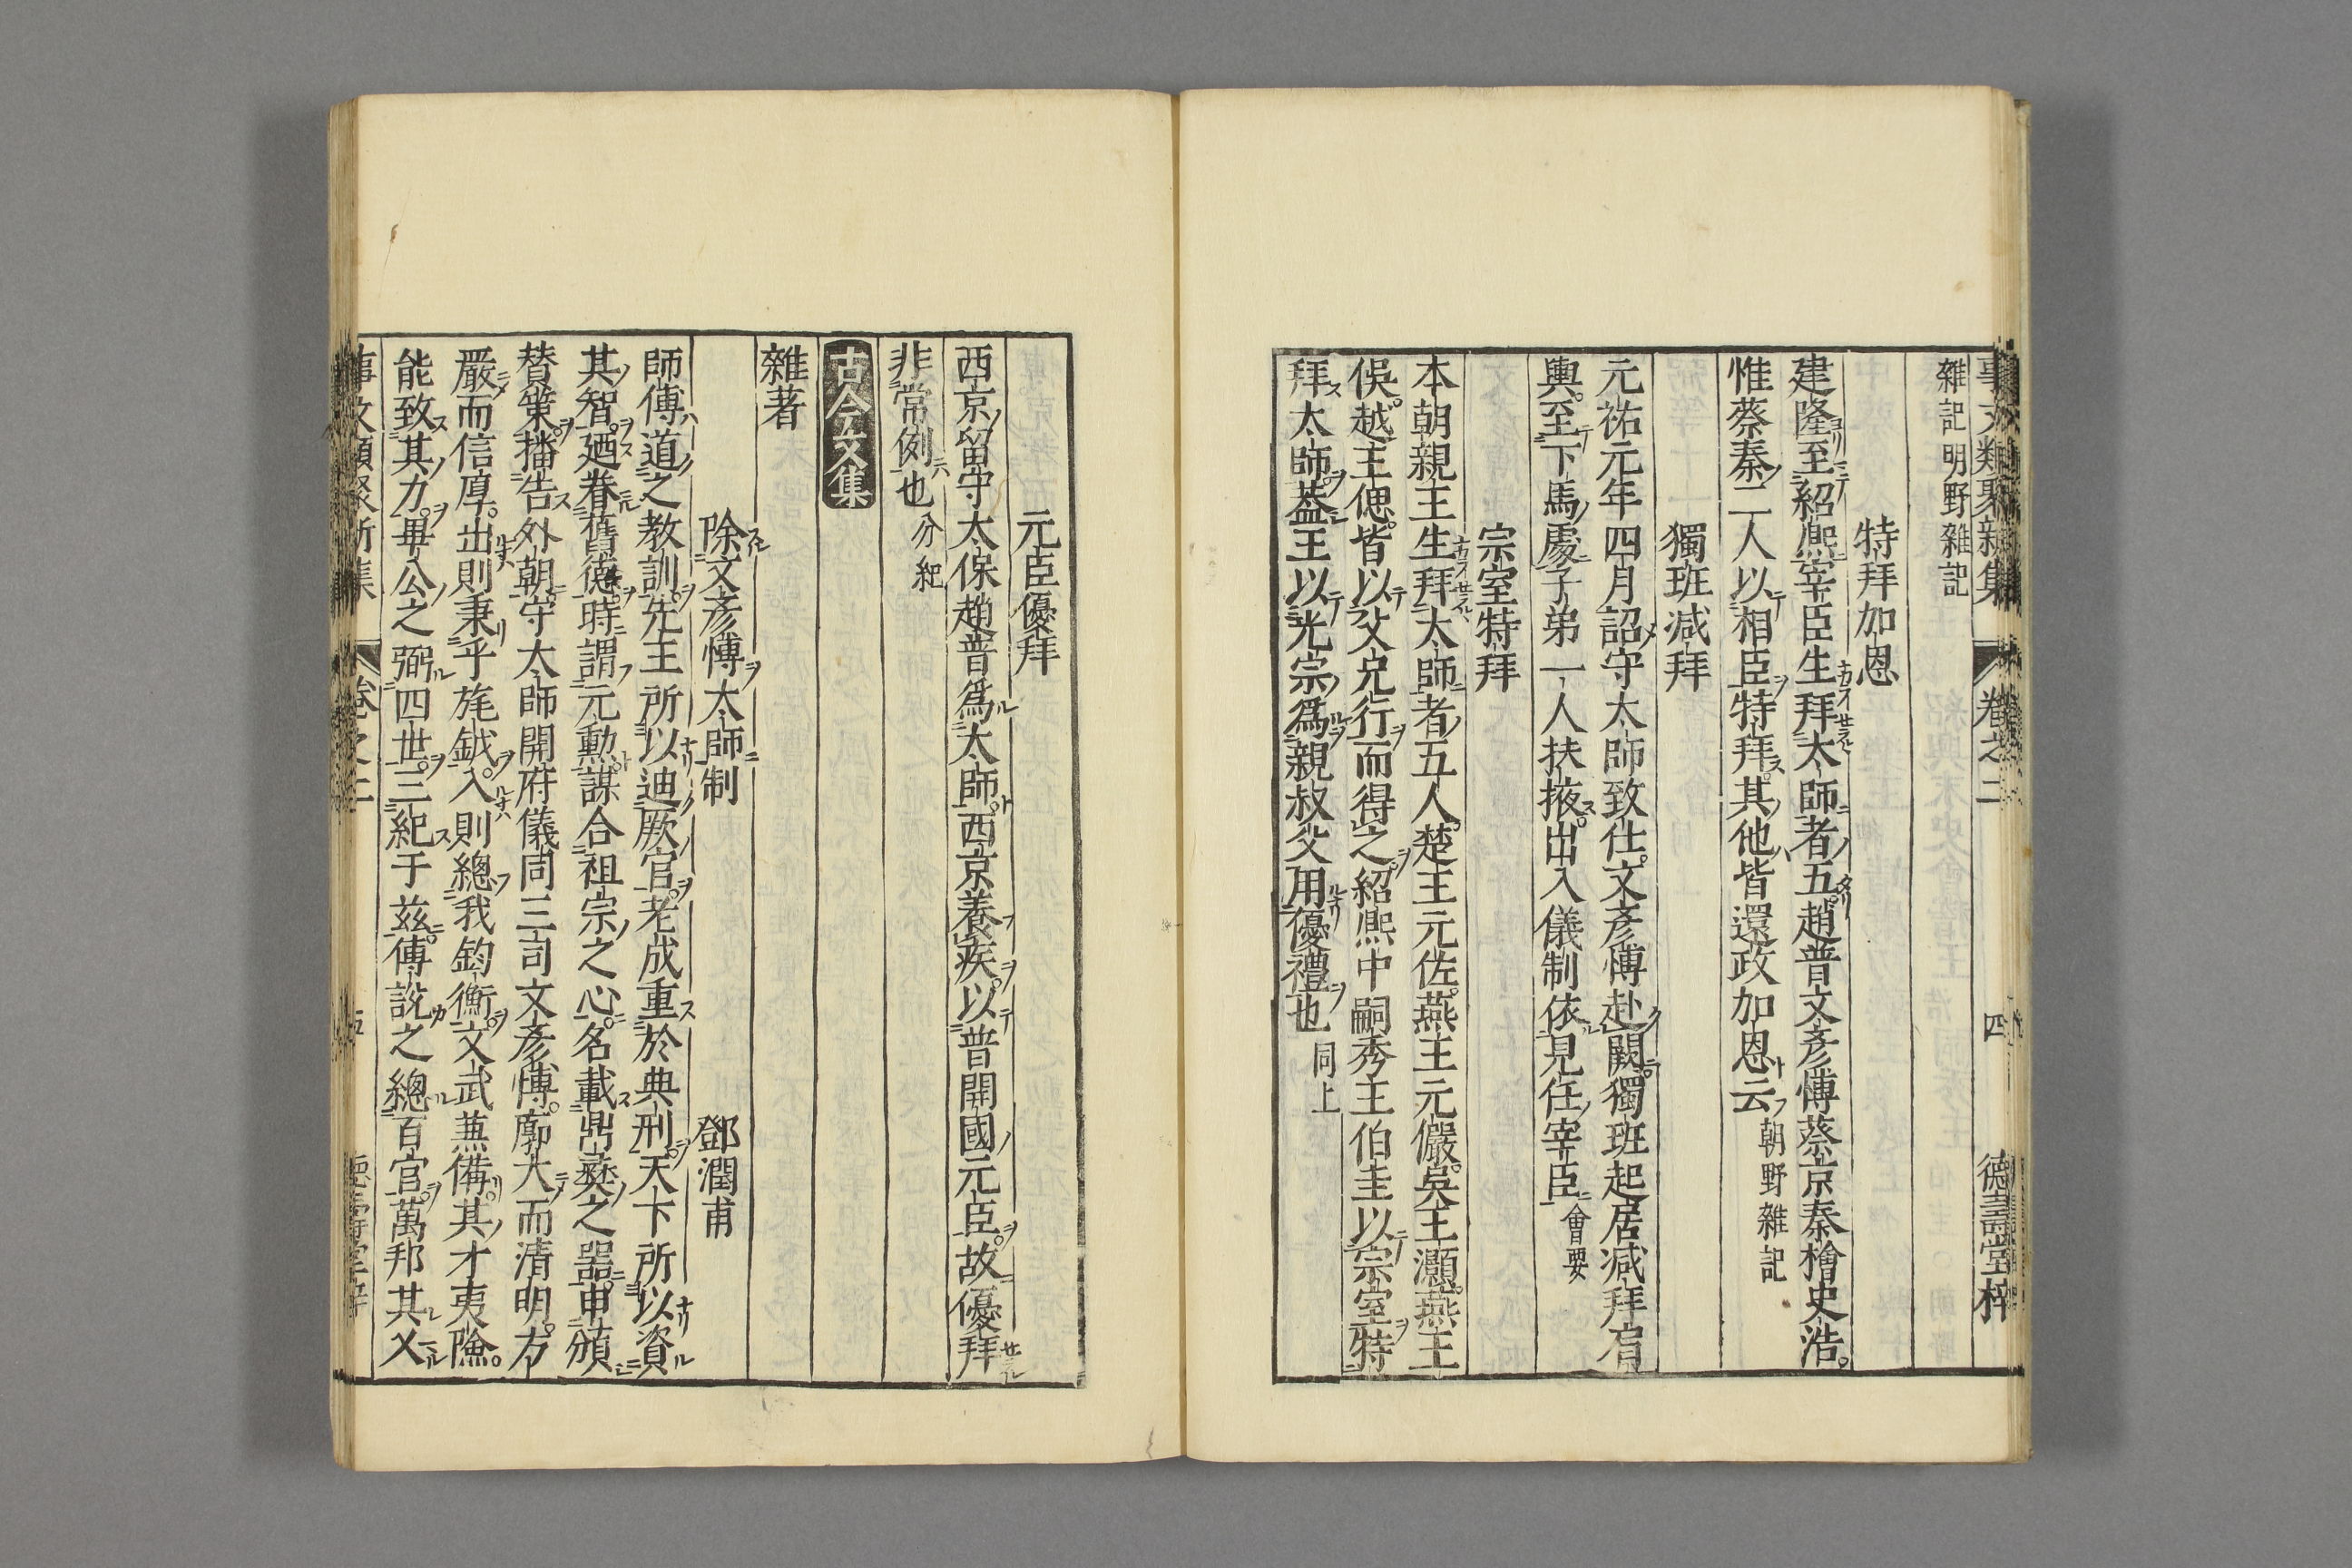 事文類聚新集 卷之二 四 德壽堂梓
雜記明野雜記
特拜加恩
建隆至紹熙宰臣生拜太師者五趙普文彥博蔡京秦檜史浩
惟蔡秦二人以相臣特拜其他皆還政加恩云朝野雜記
獨班減拜
元祐元年四月詔守太師致仕文彥博赴闕獨班起居減拜肩
輿至下馬處子弟一人扶掖出入儀制依見任宰臣會要
宗室特拜
本朝親王生拜太師者五人楚王元佐燕王元儼吳王灝燕王
俁越王偲皆以父兄行而得之紹熙中嗣秀王伯圭以宗室特
拜太師葢王以光宗爲親叔父用優禮也同上
元臣優拜
西京留守太保趙普爲太師西京養疾以普開國元臣故優拜
非常例也分紀
古今文集
雜著
除文彥博太師制 鄧潤甫
師傅道之教訓先王所以迪厥官老成重於典刑天下所以資
其智廼眷舊德時謂元勳謀合祖宗之心名載鼎彝之器申頒
賛策播告外朝守太師開府儀同三司文彥博廓大而清明方
嚴而信厚出則秉乎旄鉞入則總我鈞衡文武兼備其才夷險
能致其力畢公之弼四世三紀于茲傅說之總百官萬邦其乂
事文類聚新集 卷之二 五 德壽堂梓